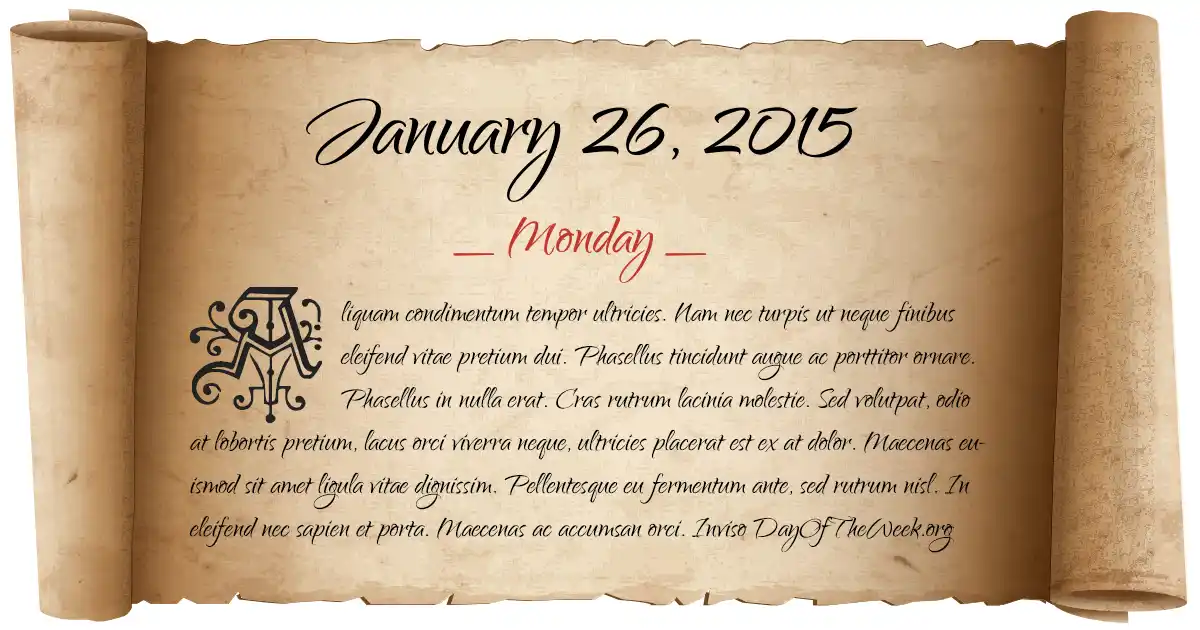 January 26, 2015
— Monday —
Aliquam condimentum tempor ultricies. Nam nec turpis ut neque finibus
eleifend vitae pretium dui. Phasellus tincidunt augue ac porttitor ornare.
Phasellus in nulla erat. Cras rutrum lacinia molestie. Sed volutpat, odio
at lobortis pretium, lacus orci viverra neque, ultricies placerat est ex at dolor. Maecenas eu-
ismod sit amet ligula vitae dignissim. Pellentesque eu fermentum ante, sed rutrum nisl. In
eleifend nec sapien et porta. Maecenas ac accumsan orci. Inviso DayOfTheWeek.org